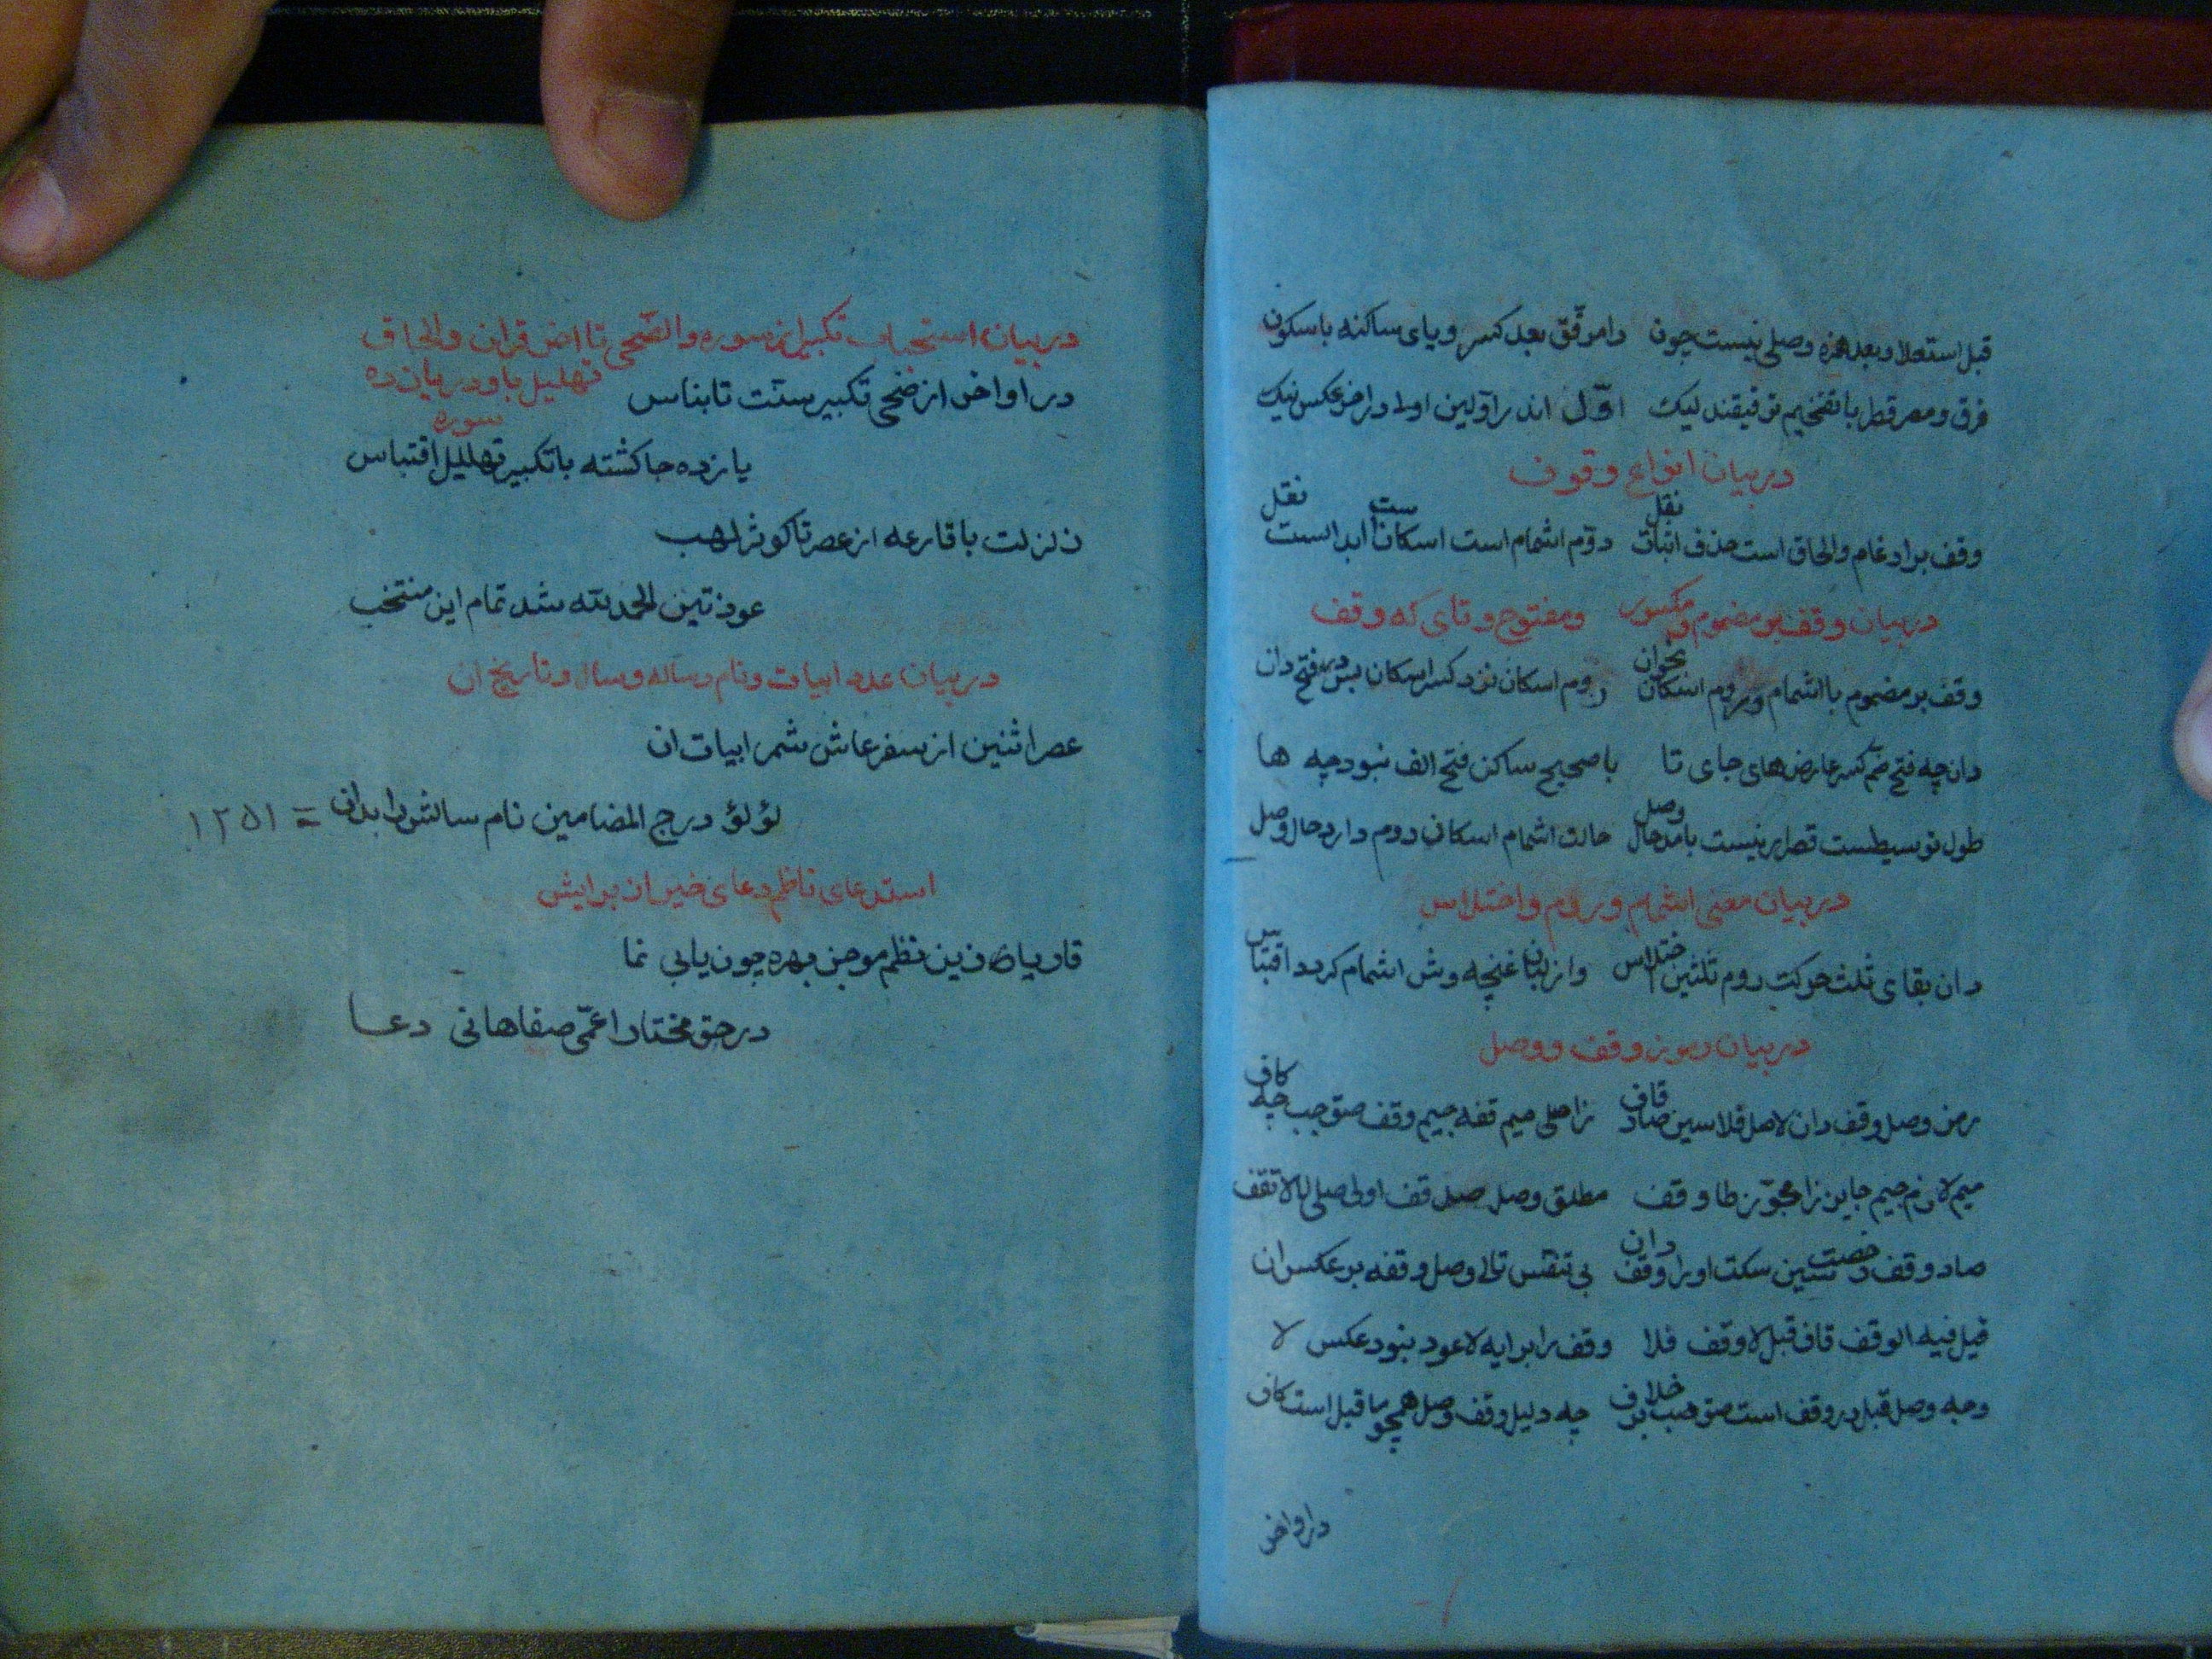 قبل استعلا و بعد همزه وصلی نیست چون دا مرقّق بعد کسر و یای ساکنه با سکون
فرق و مصر قطر با تفخیم ترقیقند لیک اوّل اندر اوّلین اولی در اخر عکس نیک
در بیان انواع وقوف
وقف بر ادغام و الحاق است حذف اثبات نقل دوّم اشمام است اسکان ابدالست نقل
در بیان وقف بر مضموم و مکسور و مفتوح و تای که وقف
وقف بر مضموم با اشمام و روم اسکان بخوان روم اسکان نزد کسر اسکان بس در فتح دان
دان چه فتح ضم کسر عارض های جای تا با صحیح ساکن فتح الف نبود چه ها
طول توسیطست قصر نیست با مد حال وصل حالت اشمام اسکان دوم دارد حال وصل
در بیان معنی اشمام و روم و اختلاس
دان بقای ثلث حرکت روم ثلثین اختلاس وز لبان غنچه وش اشمام کرد اقتباس
در بیان رموز وقف و وصل
رمز وصل وقف دان لا صل قلا سین صاد قاف زا صلی میم قفه جیم وقف صق جب چه کاف
میم لازم جیم جایز زا مجوّز طا وقف مطلق وصل صل قف اولی صلی لا لا تقف
صاد وقف رخصت سین سکت او را وقف دان بی تنفّس تالی وصل وقفه بر عکس ان
قیل فیه الوقف قاف قبل لا وقف قلا وقف را بر ایه لا عود نبود عکس لا
وجه وصل قبل در وقف است صق جب بر خلاف چه دلیل وقف وصل همچو ما قبل است کاف
در اواخر
در بیان استحباب تکبیر از سوره والضّحی تا اخر قران و الحاق
تهلیل با و در یازده
سوره
در اواخر از ضحی تکبیر سنّت تا بناس
یازده جا کشته با تکبیر تهلیل اقتباس
زلزلت با قارعه از عصر تا کوثر لهب
عوذتین الحمد لله شد تمام این منتخب
در بیان عدد ابیات و نام رساله و سال و تاریخ ان
عصر اثنین از سفر عاش شمر ابیات ان
لؤلؤ درج المضامین نام سالش را بدان = ١٢٥١
استدعای ناظم دعای خیر از برایش
قاریا زین نظم موجز بهره چون یابی نما
در حق مختار اعمّی صفاهانی دعا